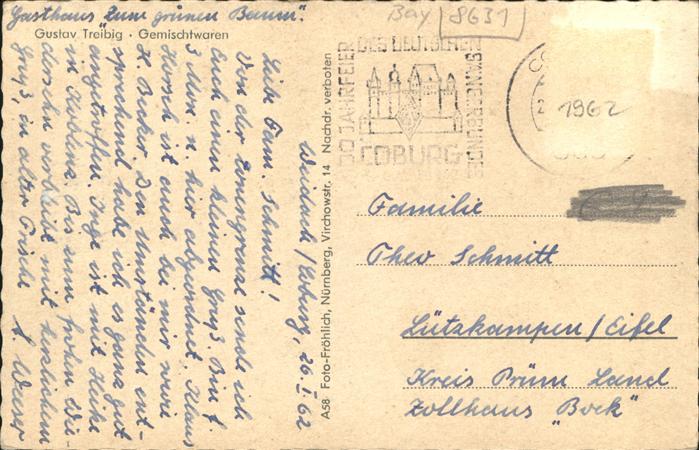 Gasthaus "Zum grünen Baum".
Gustav Treibig · Gemischtwaren
Weidach/Coburg, 26.I.62
Liebe Fam. Schmitt!
Von der Zonengrenze sende ich
Euch einen kleinen Gruß. Bin f.
3 Mon. n. hier abgeordnet. Klaus
Horsch ist auch bei mir sowie
H. Baker. Den Umständen ent-
sprechend habe ich es ganz gut
angetroffen. Inge ist mit Heike
in Koblenz. Bis zum frohen Wie-
dersehn verbleibt mit herzlichem
Gruß, in alter Frische
A58 Foto-Fröhlich, Nürnberg, Virchowstr. 14 Nachdr. verboten
Bay 8631
100 JAHRFEIER DES DEUTSCHEN SÄNGERBUNDES
COBURG
1962
Familie
Theo Schmitt
Lützkampen/Eifel
Kreis Prüm Land
Zollhaus "Bock"